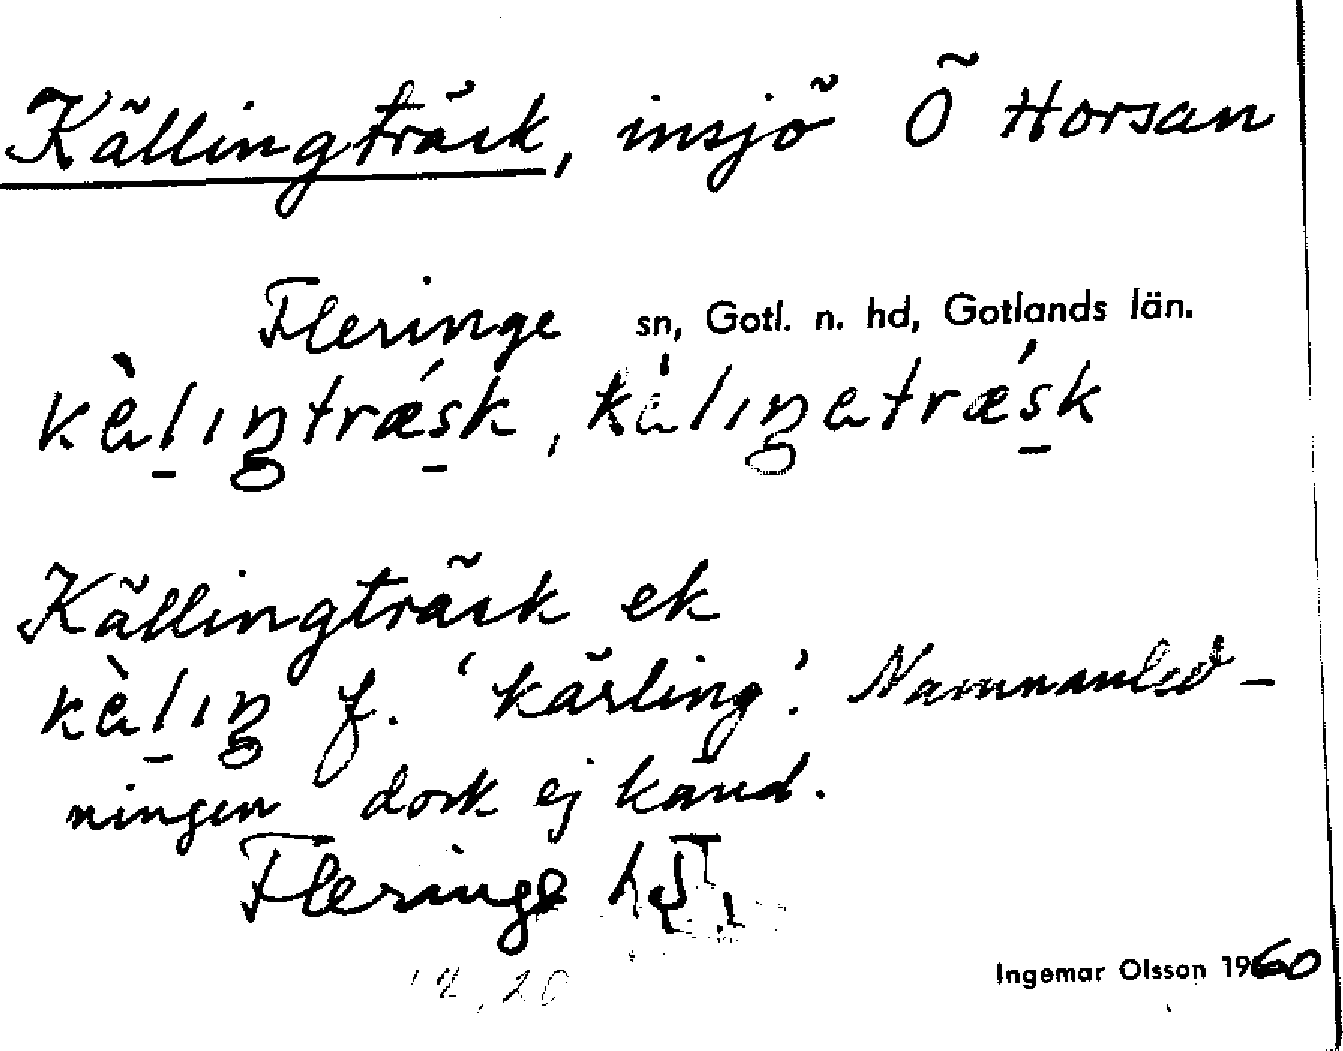 Källingträsk, insjö Ö Horsan
Fleringe sn, Gotl. n. hd, Gotlands län.
kàlıŋtrǽsk, kàlıŋatrǽsk
Källingträsk ek
kàlıŋ f. 'kärling'. Namnanled-
ningen dock ej känd.
Fleringe
Ingemar Olsson 1960